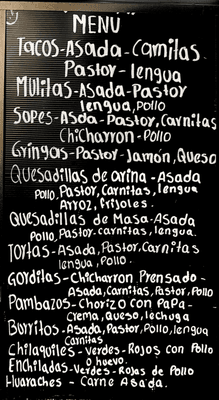 MENU
Tacos-Asada-Carnitas
Pastor-lengua
Mulitas-Asada-Pastor
lengua, Pollo
Sopes-Asda-Pastor, Carnitas
Chicharron-Pollo
Gringas-Pastor-Jamón, Queso
Quesadillas de arina-Asada
Pollo, Pastor, Carnitas, lengua
Arroz, Frijoles.
Quesadillas de Masa-Asada
Pollo, Pastor-carnitas, lengua.
Tortas-Asada, Pastor, Carnitas
lengua, Pollo.
Gorditas-Chicharron Prensado-
Asada, Carnitas, Pastor, Pollo
Pambazos-Chorizo con Papa-
Crema, Queso, lechuga
Burritos-Asada, Pastor, Pollo, lengua
Carnitas
Chilaquiles-Verdes-Rojos con Pollo
o huevo.
Enchiladas-Verdes-Rojas de Pollo
Huaraches - Carne Asada.